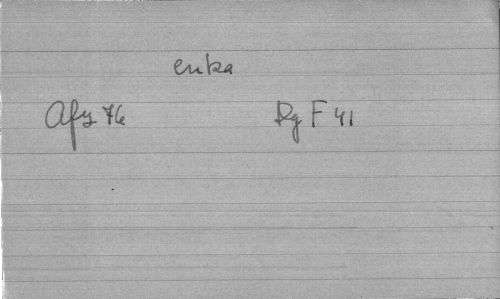 enka
Afz 76
Rg F 41